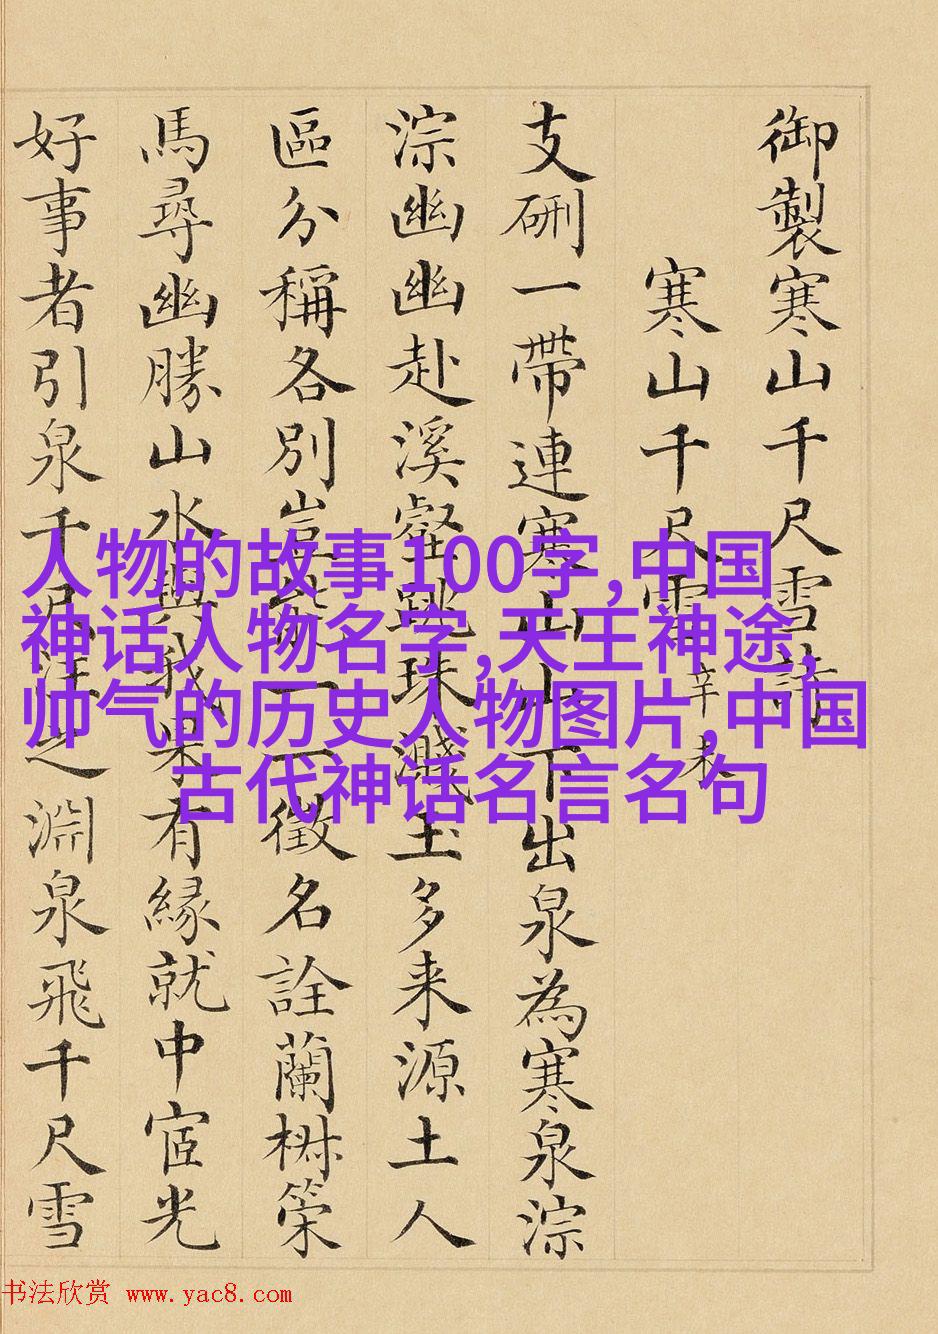 御製寒山千尺雪詩
寒山千尺雪 辛未
支硎一帶連寒山山下出泉為寒泉淙
淙幽幽赴溪壑跳珠濺玉多来源土人
區分稱各別豈能一一徵名詮蘭椒策
馬尋幽勝山水與我果有緣就中宧光
好事者引泉千尺注之淵泉飛千尺雪
人物的故事100字,中国
神话人物名字,天王神途,
帅气的历史人物图片,中国
古代神话名言名句
书法欣赏 www.yac8.com